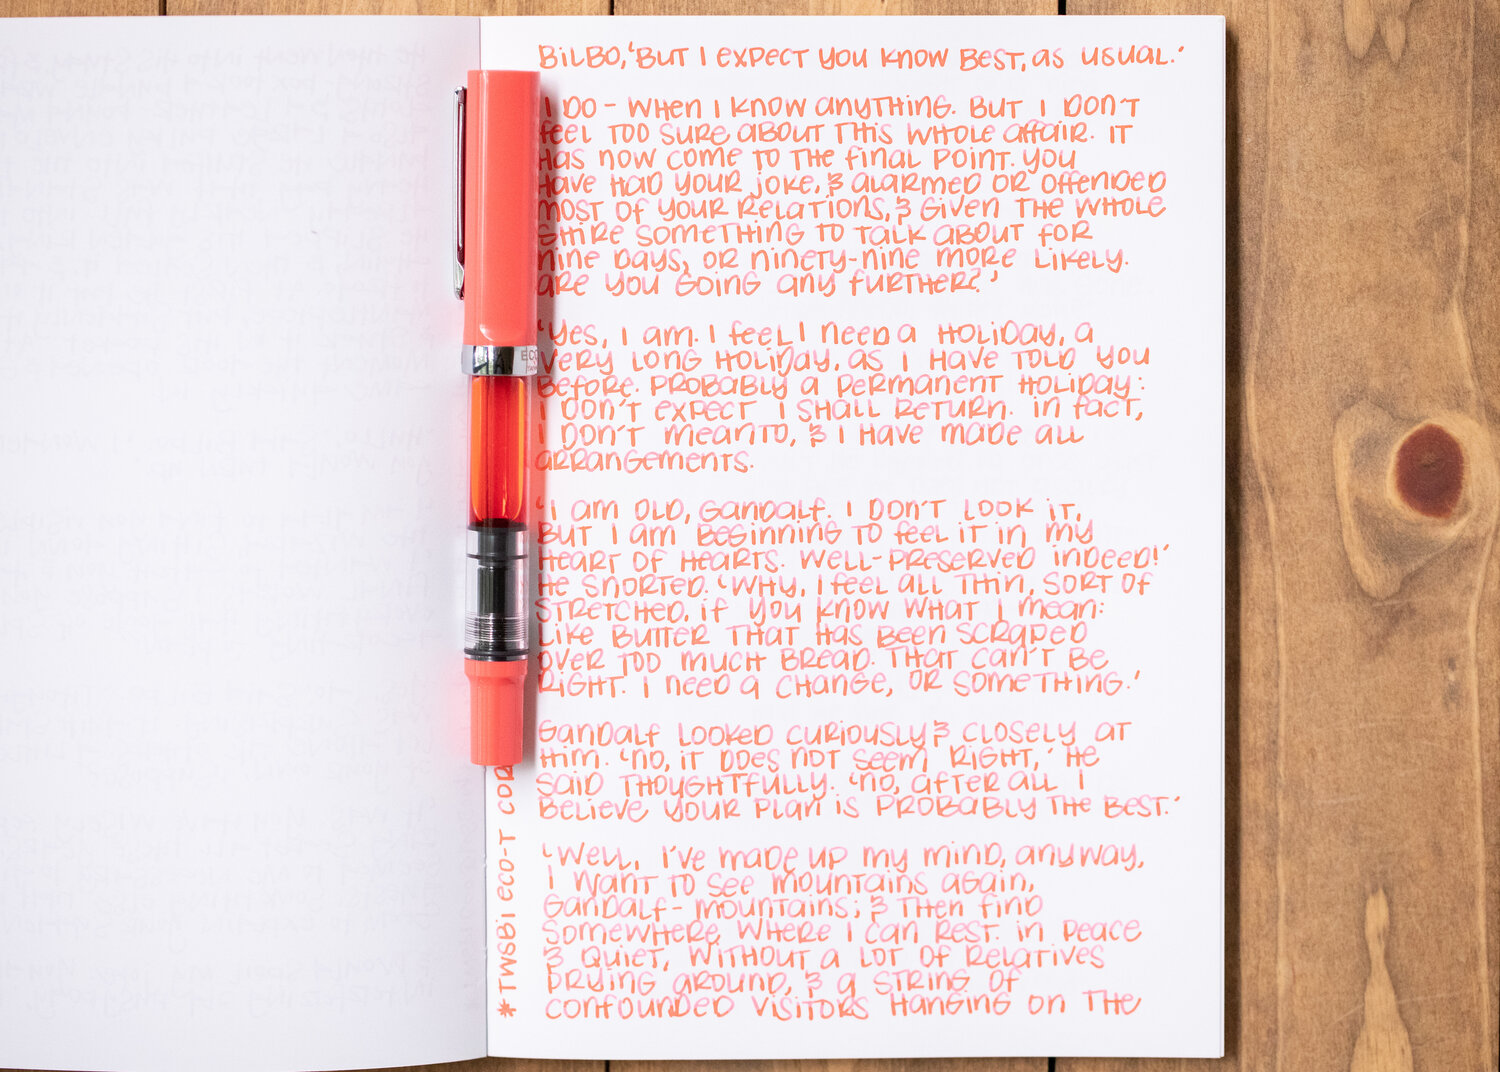 BiLBO, 'BUT I EXPECT YOU KNOW BEST, AS USUAL.'
I DO - WHEN I KNOW ANYTHING. BUT I DON'T
FEEL TOO SURE ABOUT THIS WHOLE AFFAIR. IT
HAS NOW COME TO THE FINAL POINT. YOU
HAVE HAD YOUR JOKE, & ALARMED OR OFFENDED
MOST OF YOUR RELATIONS, & GIVEN THE WHOLE
SHIRE SOMETHING TO TALK ABOUT FOR
NINE DAYS, OR NINETY-NINE MORE LIKELY.
ARE YOU GOING ANY FURTHER?'
'YES, I AM. I FEEL I NEED A HOLIDAY, A
VERY LONG HOLIDAY, AS I HAVE TOLD YOU
BEFORE. PROBABLY A PERMANENT HOLIDAY:
I DON'T EXPECT I SHALL RETURN. IN FACT,
I DON'T MEAN TO, & I HAVE MADE ALL
ARRANGEMENTS.
'I AM OLD, GANDALF. I DON'T LOOK IT,
BUT I AM BEGINNING TO FEEL IT IN MY
HEART OF HEARTS. WELL-PRESERVED INDEED!'
HE SNORTED. 'WHY, I FEEL ALL THIN, SORT OF
STRETCHED, IF YOU KNOW WHAT I MEAN:
LIKE BUTTER THAT HAS BEEN SCRAPED
OVER TOO MUCH BREAD. THAT CAN'T BE
RIGHT. I NEED A CHANGE, OR SOMETHING.'
GANDALF LOOKED CURIOUSLY & CLOSELY AT
HIM. 'NO, IT DOES NOT SEEM RIGHT,' HE
SAID THOUGHTFULLY. 'NO, AFTER ALL I
BELIEVE YOUR PLAN IS PROBABLY THE BEST.'
'WELL, I'VE MADE UP MY MIND, ANYWAY.
I WANT TO SEE MOUNTAINS AGAIN,
GANDALF - MOUNTAINS; & THEN FIND
SOMEWHERE WHERE I CAN REST. IN PEACE
& QUIET, WITHOUT A LOT OF RELATIVES
PRYING AROUND, & A STRING OF
CONFOUNDED VISITORS HANGING ON THE
*TWSBI ECO-T
ECO